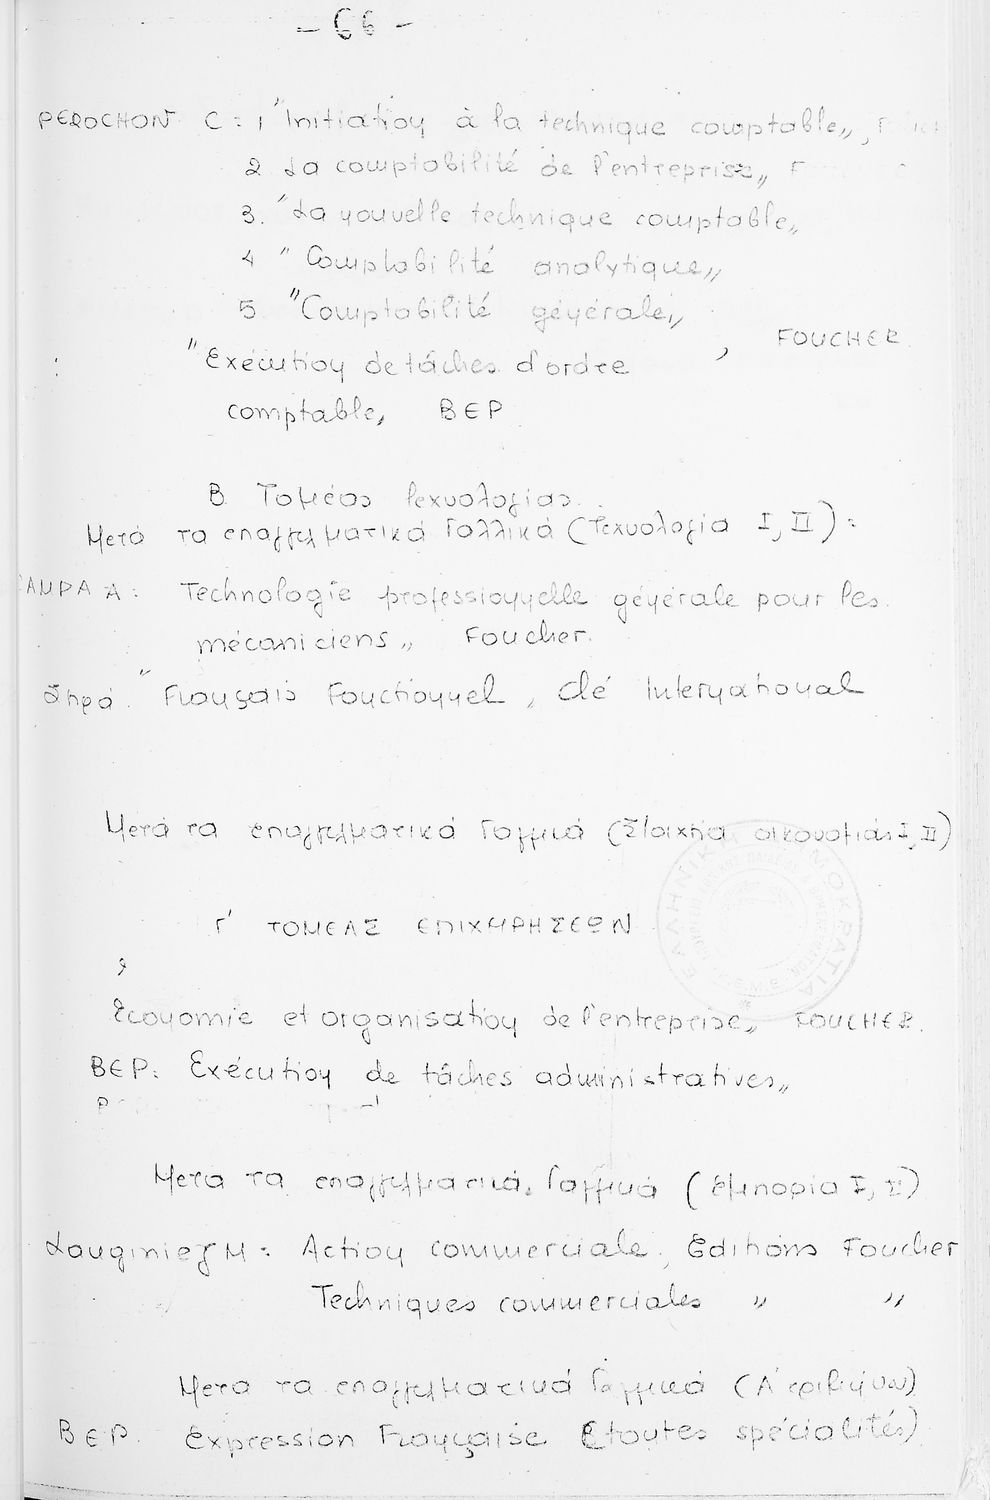 - 66 -
PEROCHON C: 1 "Initiation à la technique comptable„,
2 La comptabilité de l'entreprise„
3. "La nouvelle technique comptable„
4 " Comptabilité analytique„
5 "Comptabilité générale„
, FOUCHER.
"Exécution de tâches d'ordre
comptable, BEP
Β Τομέας Τεχνολογίας.
Μετά τα επαγγελματικά Γαλλικά (Τεχνολογία Ι, ΙΙ):
A: Technologie professionnelle générale pour les
mécaniciens„ Foucher.
Σειρά. "Français Fonctionnel, Clé International
Μετά τα επαγγελματικά Γαλλικά (Στοιχεία οικονομίας Ι, ΙΙ)
ΕΛΛΗΝΙΚΗ ΔΗΜΟΚΡΑΤΙΑ
Γ' ΤΟΜΕΑΣ ΕΠΙΧΕΙΡΗΣΕΩΝ
Economie et organisation de l'entreprise„ FOUCHER.
BEP: Exécution de tâches administratives„
Μετα τα επαγγελματικά Γαλλικά (Εμπορία Ι, ΙΙ)
Lauginie J M: Action commerciale, Editions Foucher
Techniques commerciales „ „
Μετα τα επαγγελματικά Γαλλικά
BEP. Expression Française (toutes spécialités)